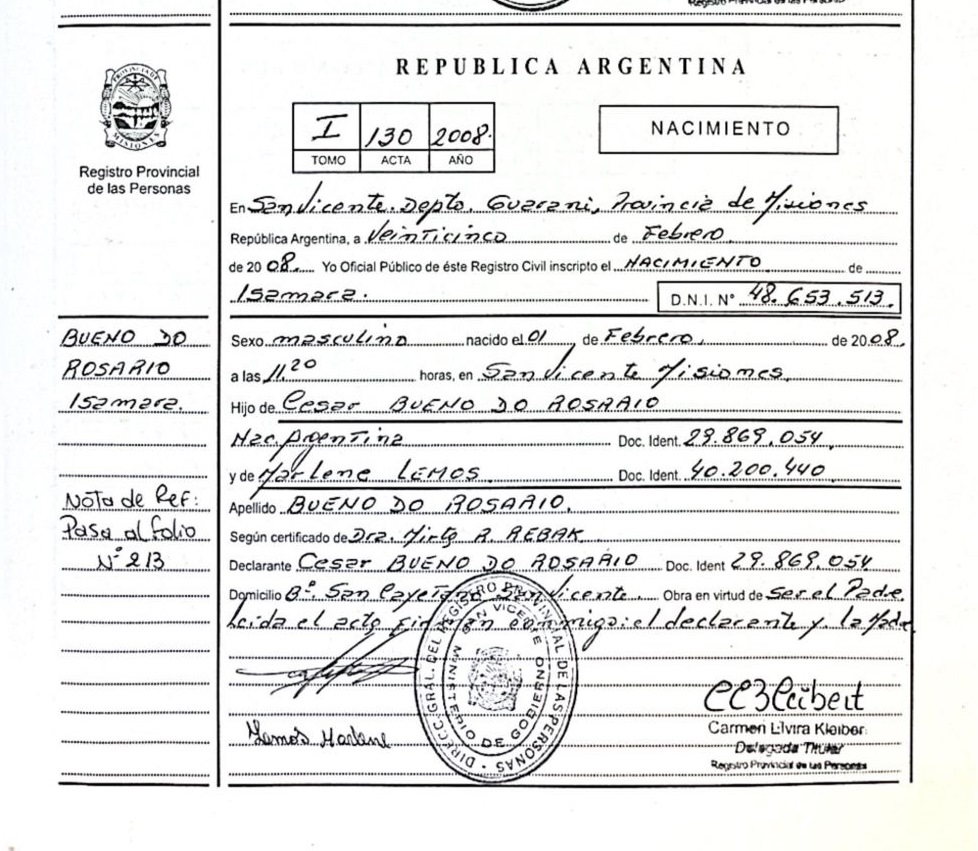 REPUBLICA ARGENTINA
PROVINCIA DE MISIONES
Registro Provincial
de las Personas
I 130 2008
TOMO ACTA AÑO
NACIMIENTO
En San Vicente. Depto. Guarani, Provincia de Misiones
República Argentina, a Veinticinco de Febrero
de 2008. Yo Oficial Público de éste Registro Civil inscripto el NACIMIENTO de
Isamara. D.N.I. N° 48.653.513.
BUENO DO
ROSARIO
Isamara.
Nota de Ref:
Pasa al folio
N° 213
Sexo masculino nacido el 01 de Febrero, de 2008.
a las 11,20 horas, en San Vicente Misiones
Hijo de Cesar BUENO DO ROSARIO
Nac. Argentina Doc. Ident. 29.869.054
y de Marlene LEMOS. Doc. Ident. 40.200.440
Apellido BUENO DO ROSARIO.
Según certificado de Dra. Mirta R. REBAK
Declarante Cesar BUENO DO ROSARIO Doc. Ident 29.869.054
Domicilio B°. San Cayetano San Vicente. Obra en virtud de Ser el Padre.
Leida el acta Firman conmigo: el declarante y la Madre
DIRECC. GRAL. DEL REGISTRO PROVINCIAL DE LAS PERSONAS
SAN VICENTE MINISTERIO DE GOBIERNO
Lemos Marlene
Carmen Elvira Kleiber
Delegada Titular
Registro Provincial de las Personas